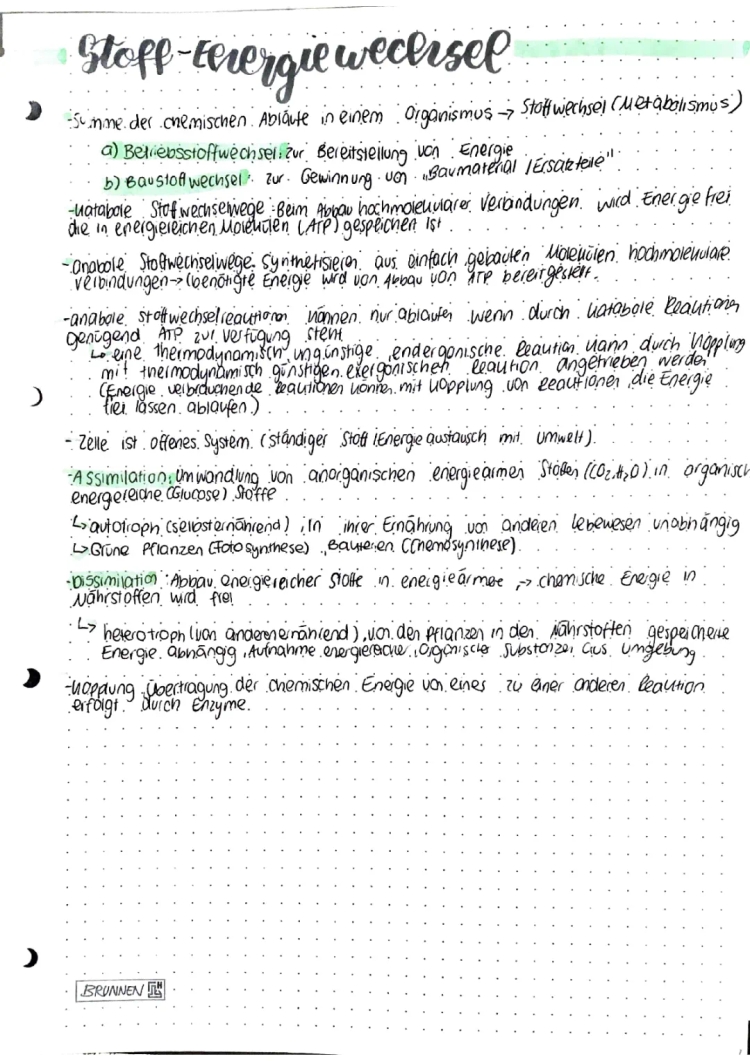 Stoff-Energiewechsel
-Summe der chemischen Abläufe in einem Organismus → Stoffwechsel (Metabolismus)
a) Betriebsstoffwechsel: zur Bereitstellung von Energie
b) Baustoffwechsel: zur Gewinnung von „Baumaterial / Ersatzteile"
-katabole Stoffwechselwege: Beim Abbau hochmolekularer Verbindungen wird Energie frei
die in energiereichen Molekülen (ATP) gespeichert ist
-anabole Stoffwechselwege: Synthetisieren aus einfach gebauten Molekülen hochmolekulare
Verbindungen → (benötigte Energie wird von Abbau von ATP bereitgestellt.
-anabole Stoffwechselreaktionen können nur ablaufen wenn durch katabole Reaktionen
genügend ATP zur Verfügung steht
↳ eine thermodynamisch ungünstige, endergonische Reaktion kann durch Kopplung
mit thermodynamisch günstigen exergonischen Reaktion angetrieben werden
(Energie verbrauchende Reaktionen können mit Kopplung von Reaktionen, die Energie
frei lassen ablaufen.)
- Zelle ist offenes System (ständiger Stoff / Energie austausch mit Umwelt).
-Assimilation: Umwandlung von anorganischen energiearmen Stoffen (CO₂, H₂O) in organisch
energereiche (Glucose) Stoffe
↳ autotroph (selbsternährend), in ihrer Ernährung von anderen Lebewesen unabhängig
↳ Grüne Pflanzen (Fotosynthese), Bakterien (Chemosynthese)
-Dissimilation: Abbau energiereicher Stoffe in energieärmere → chemische Energie in
Nährstoffen wird frei
↳ heterotroph (von anderen ernährend), von den Pflanzen in den Nährstoffen gespeicherte
Energie abhängig, Aufnahme energiereicher, organischer Substanzen aus Umgebung
-Kopplung: Übertragung der chemischen Energie von eines zu einer anderen Reaktion
erfolgt durch Enzyme.
BRUNNEN